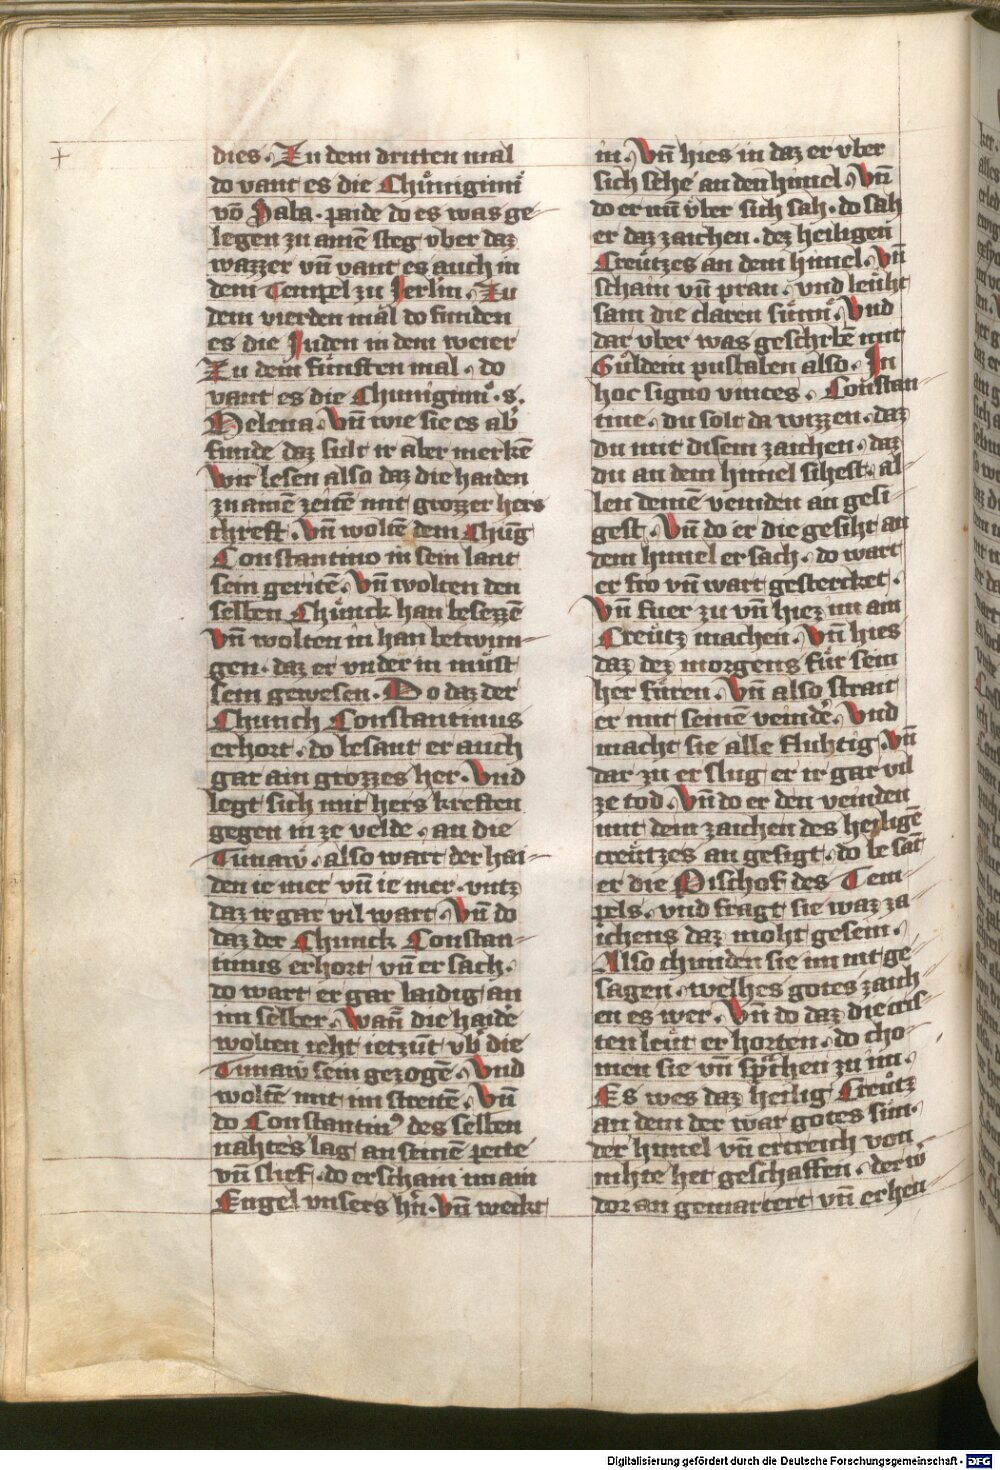 dies. Zu dem dritten mal
do vant es die Chünigiñ
võ Saba. paide do es was ge-
legen zu ainē steg vber daz
wazzer vñ vant es auch in
dem Tempel zu Jerlm̄. Zu
dem vierden mal do funden
es die Juden in dem weier
Zu dem fünften mal. do
vant es die Chünigiñ. s.
Helena. Vñ wie sie es ab᷑
funde daz sult ir aber merkē
Wir lesen also daz die haiden
zu ainē zeitē mit grozzer hers
chreft. Vñ woltē dem Chüng
Constantino in sein lant
sein geritē. Vñ wolten den
selben Chünck han besezzē
Vñ wolten in han betwun-
gen. daz er vnder in müst
sein gewesen. Do daz der
Chunch Constantinus
erhort. do besant er auch
gar ain grozzes her. Vnd
legt sich mit hers kreften
gegen in ze velde. an die
Tunaw. also wart der hai-
den ie mer vñ ie mer. vntz
daz ir gar vil wart. Vñ do
daz der Chunck Constan-
tinus erhort vñ er sach.
do wart er gar laidig an
im selber. Wañ die haidē
wolten reht ietzūt vb᷑ die
Tunaw sein gezogē. Vnd
woltē mit im streitē. Vñ
do Constantin⁹ des selben
nahtes lag an seinē pette
vñ slief. do erschain im ain
Engel vnsers hr̄n. Vñ weckt
in. Vñ hies in daz er vber
sich sehe an den himel. Vñ
do er nu vber sich sah. do sah
er daz zaichen. dez heiligen
Creützes an dem himel. Vñ
schain vñ pran. vnd leüht
sam die claren sünn. Vnd
dar vber was geschribē mit
Guldein pustaben also. In
hoc signo vinces. Constan-
tine. du solt da wizzen. daz
du mit disem zaichen. daz
du an dem himel sihest. al-
len deinē veinden an gesi-
gest. Vñ do er die gesiht an
dem himel er sach. do wart
er fro vñ wart gestercket.
Vñ fuer zu vñ hiez im ain
Creütz machen. Vñ hies
daz dez morgens für sein
her füren. Vñ also strait
er mit seinē veindē. Vnd
macht sie alle fluhtig. Vñ
dar zu er slug er ir gar vil
ze tod. Vñ do er den veinden
mit dem zaichen des heiligē
creützes an gesigt. do besāt
er die Pischof des Tem-
pels. vnd fragt sie waz za
ichens daz moht gesein.
Also chunden sie im nit ge-
sagen. welhes gotes zaich-
en es wer. Vñ do daz die cris-
ten leüt er horten. do cho-
men sie vñ sp̄chen zu im.
Es wes daz heilig Creütz
an dem der war gotes sun.
der himel vñ ertreich von
nihte het geschaffen. der w
dor an gemartert vñ erhen